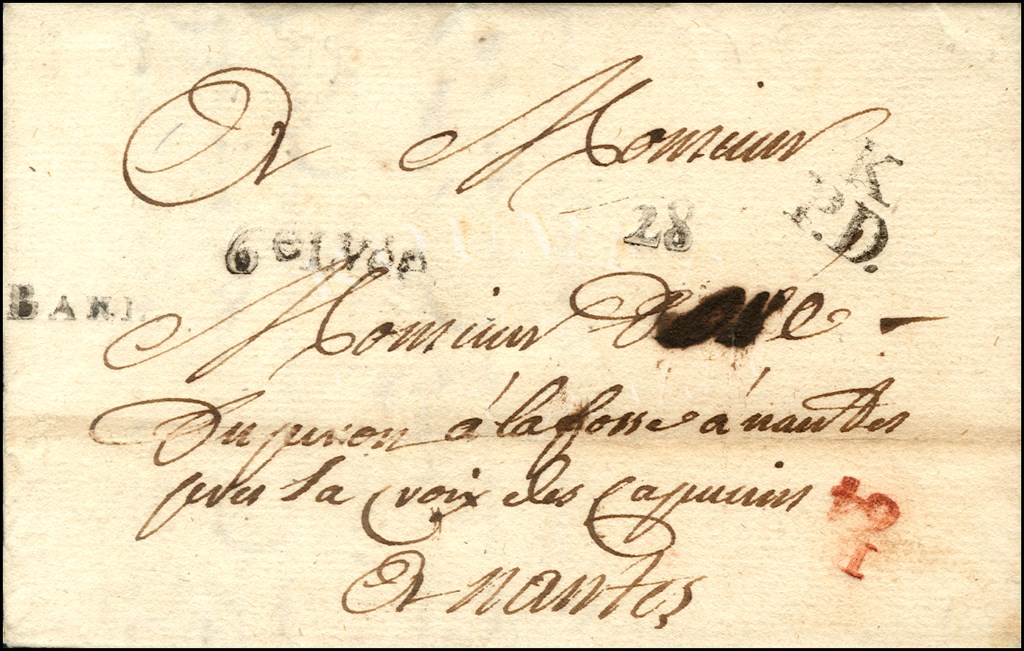 A Monsieur
K
P.D.
6e LVée
28
BARI
Monsieur
Duperon á la fosse á nantes
pres la Croix des Capucins
A nantes
I